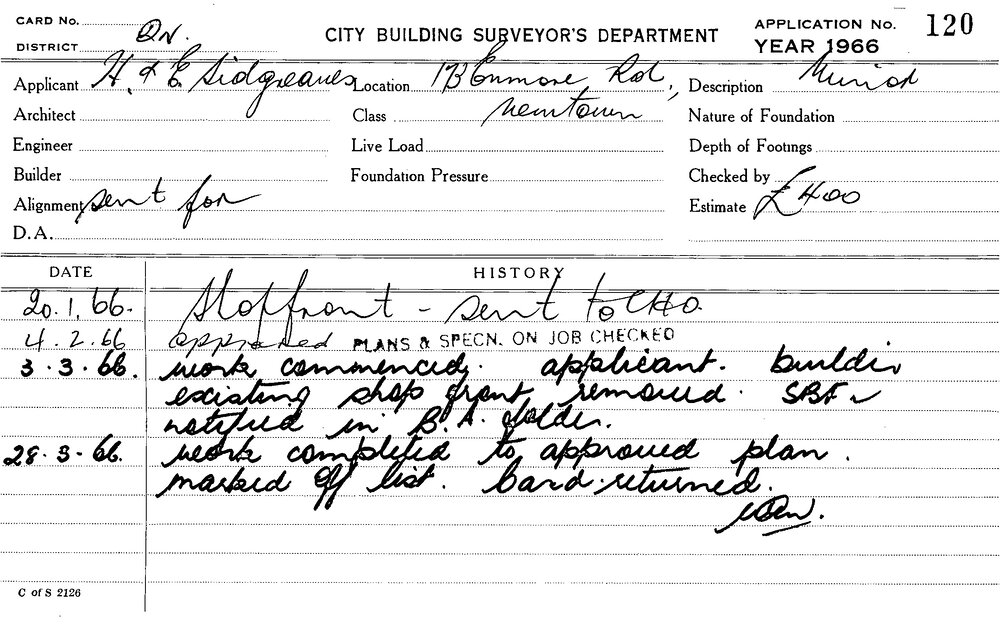 CARD No.
DISTRICT Qn.
CITY BUILDING SURVEYOR'S DEPARTMENT
APPLICATION No. 120
YEAR 1966
Applicant H. & E. Sidgreaves Location 173 Enmore Rd., Description Minor
Architect Class Newtown Nature of Foundation
Engineer Live Load Depth of Footings
Builder Foundation Pressure Checked by
Alignment sent for Estimate £400
D.A.
DATE HISTORY
20.1.66. Shopfront - sent to CHO.
4.2.66 approved PLANS & SPECN. ON JOB CHECKED
3.3.66. work commenced. applicant. builder
existing shop front removed. SBI
notified in B.A. folder.
28.3.66. work completed to approved plan.
marked off list. Card returned.
C of S 2126